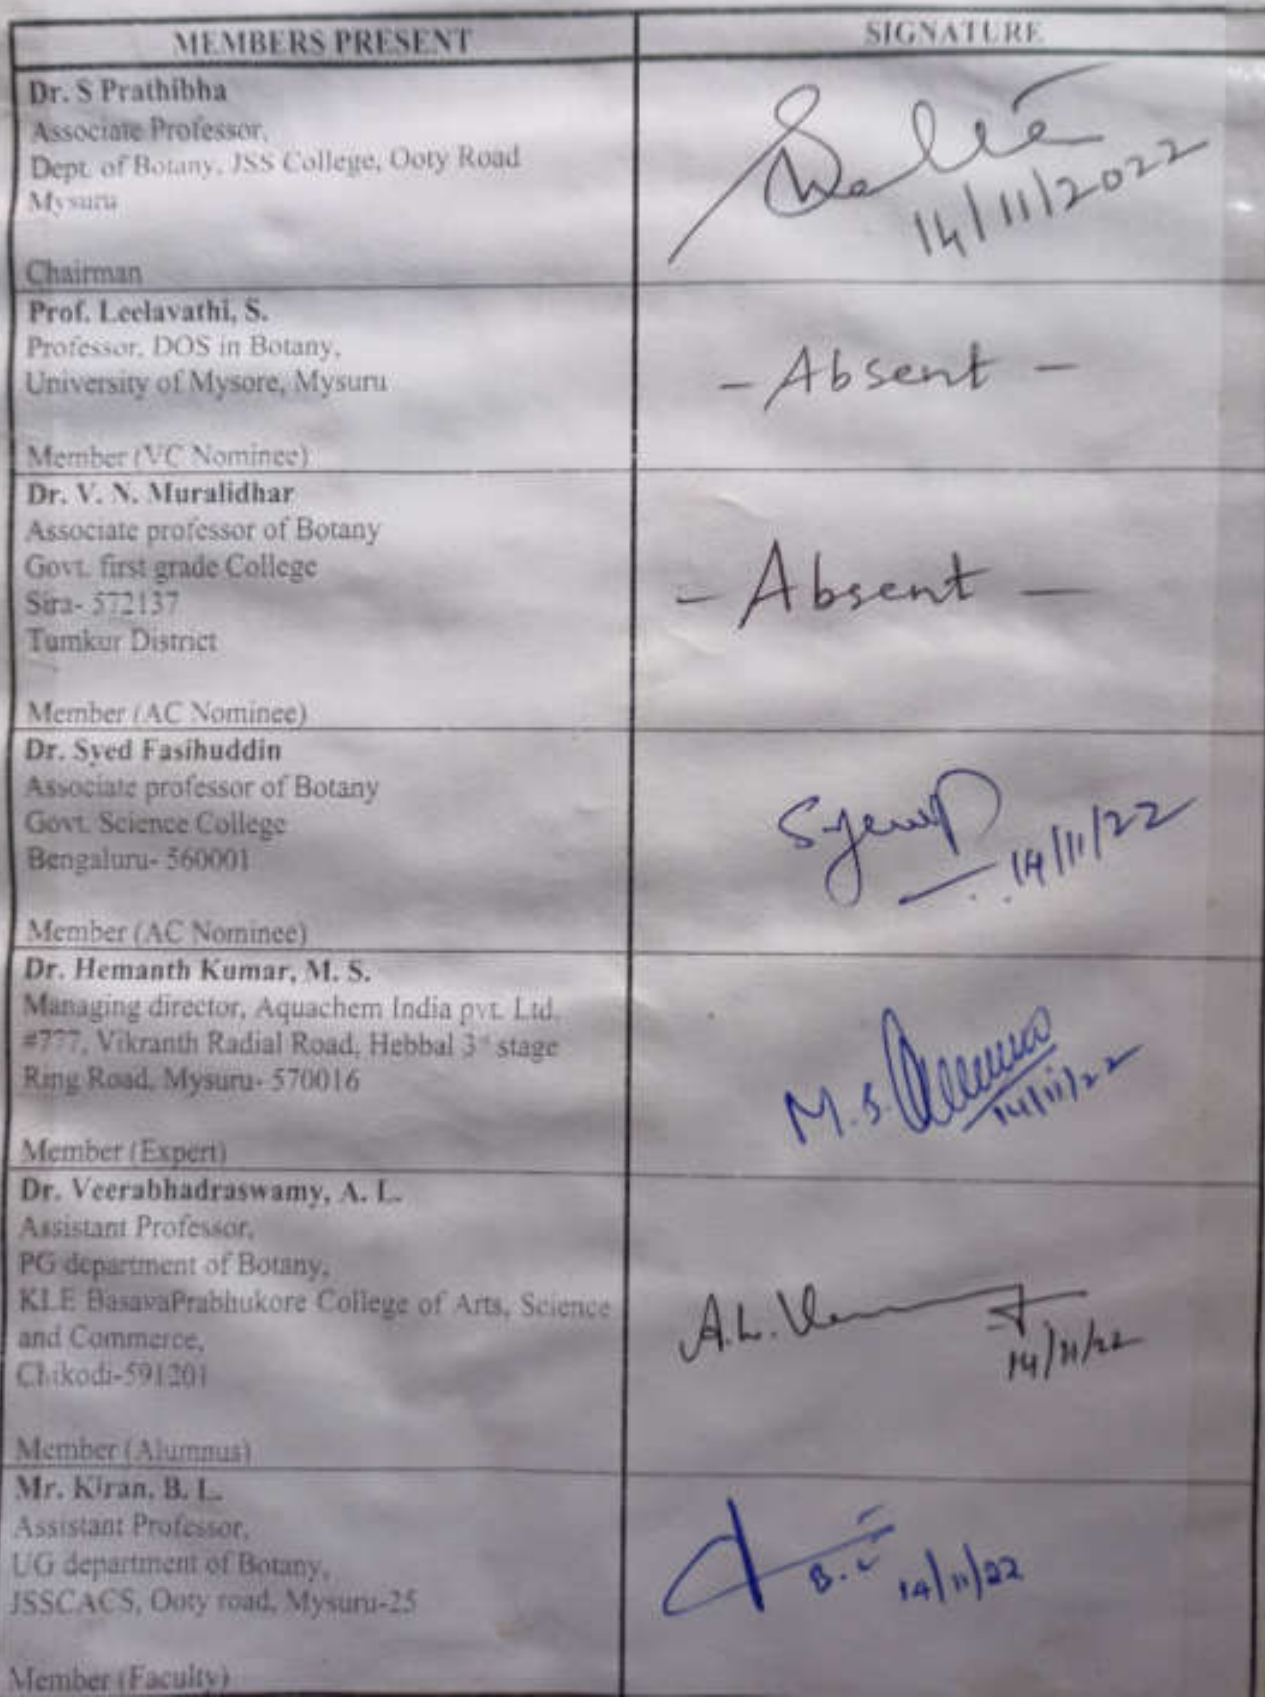 MEMBERS PRESENT
SIGNATURE
Dr. S Prathibha
Associate Professor,
Dept. of Botany, JSS College, Ooty Road
Mysuru
Chairman
14/11/2022
Prof. Leelavathi, S.
Professor, DOS in Botany,
University of Mysore, Mysuru
Member (VC Nominee)
- Absent -
Dr. V. N. Muralidhar
Associate professor of Botany
Govt. first grade College
Sira- 572137
Tumkur District
Member (AC Nominee)
- Absent -
Dr. Syed Fasihuddin
Associate professor of Botany
Govt. Science College
Bengaluru- 560001
Member (AC Nominee)
14/11/22
Dr. Hemanth Kumar, M. S.
Managing director, Aquachem India pvt. Ltd.
#777, Vikranth Radial Road, Hebbal 3rd stage
Ring Road, Mysuru- 570016
Member (Expert)
M.S.
14/11/22
Dr. Veerabhadraswamy, A. L.
Assistant Professor,
PG department of Botany,
KLE BasavaPrabhukore College of Arts, Science
and Commerce,
Chikodi-591201
Member (Alumnus)
A.L.
14/11/22
Mr. Kiran. B. L.
Assistant Professor,
UG department of Botany,
JSSCACS, Ooty road, Mysuru-25
Member (Faculty)
14/11/22